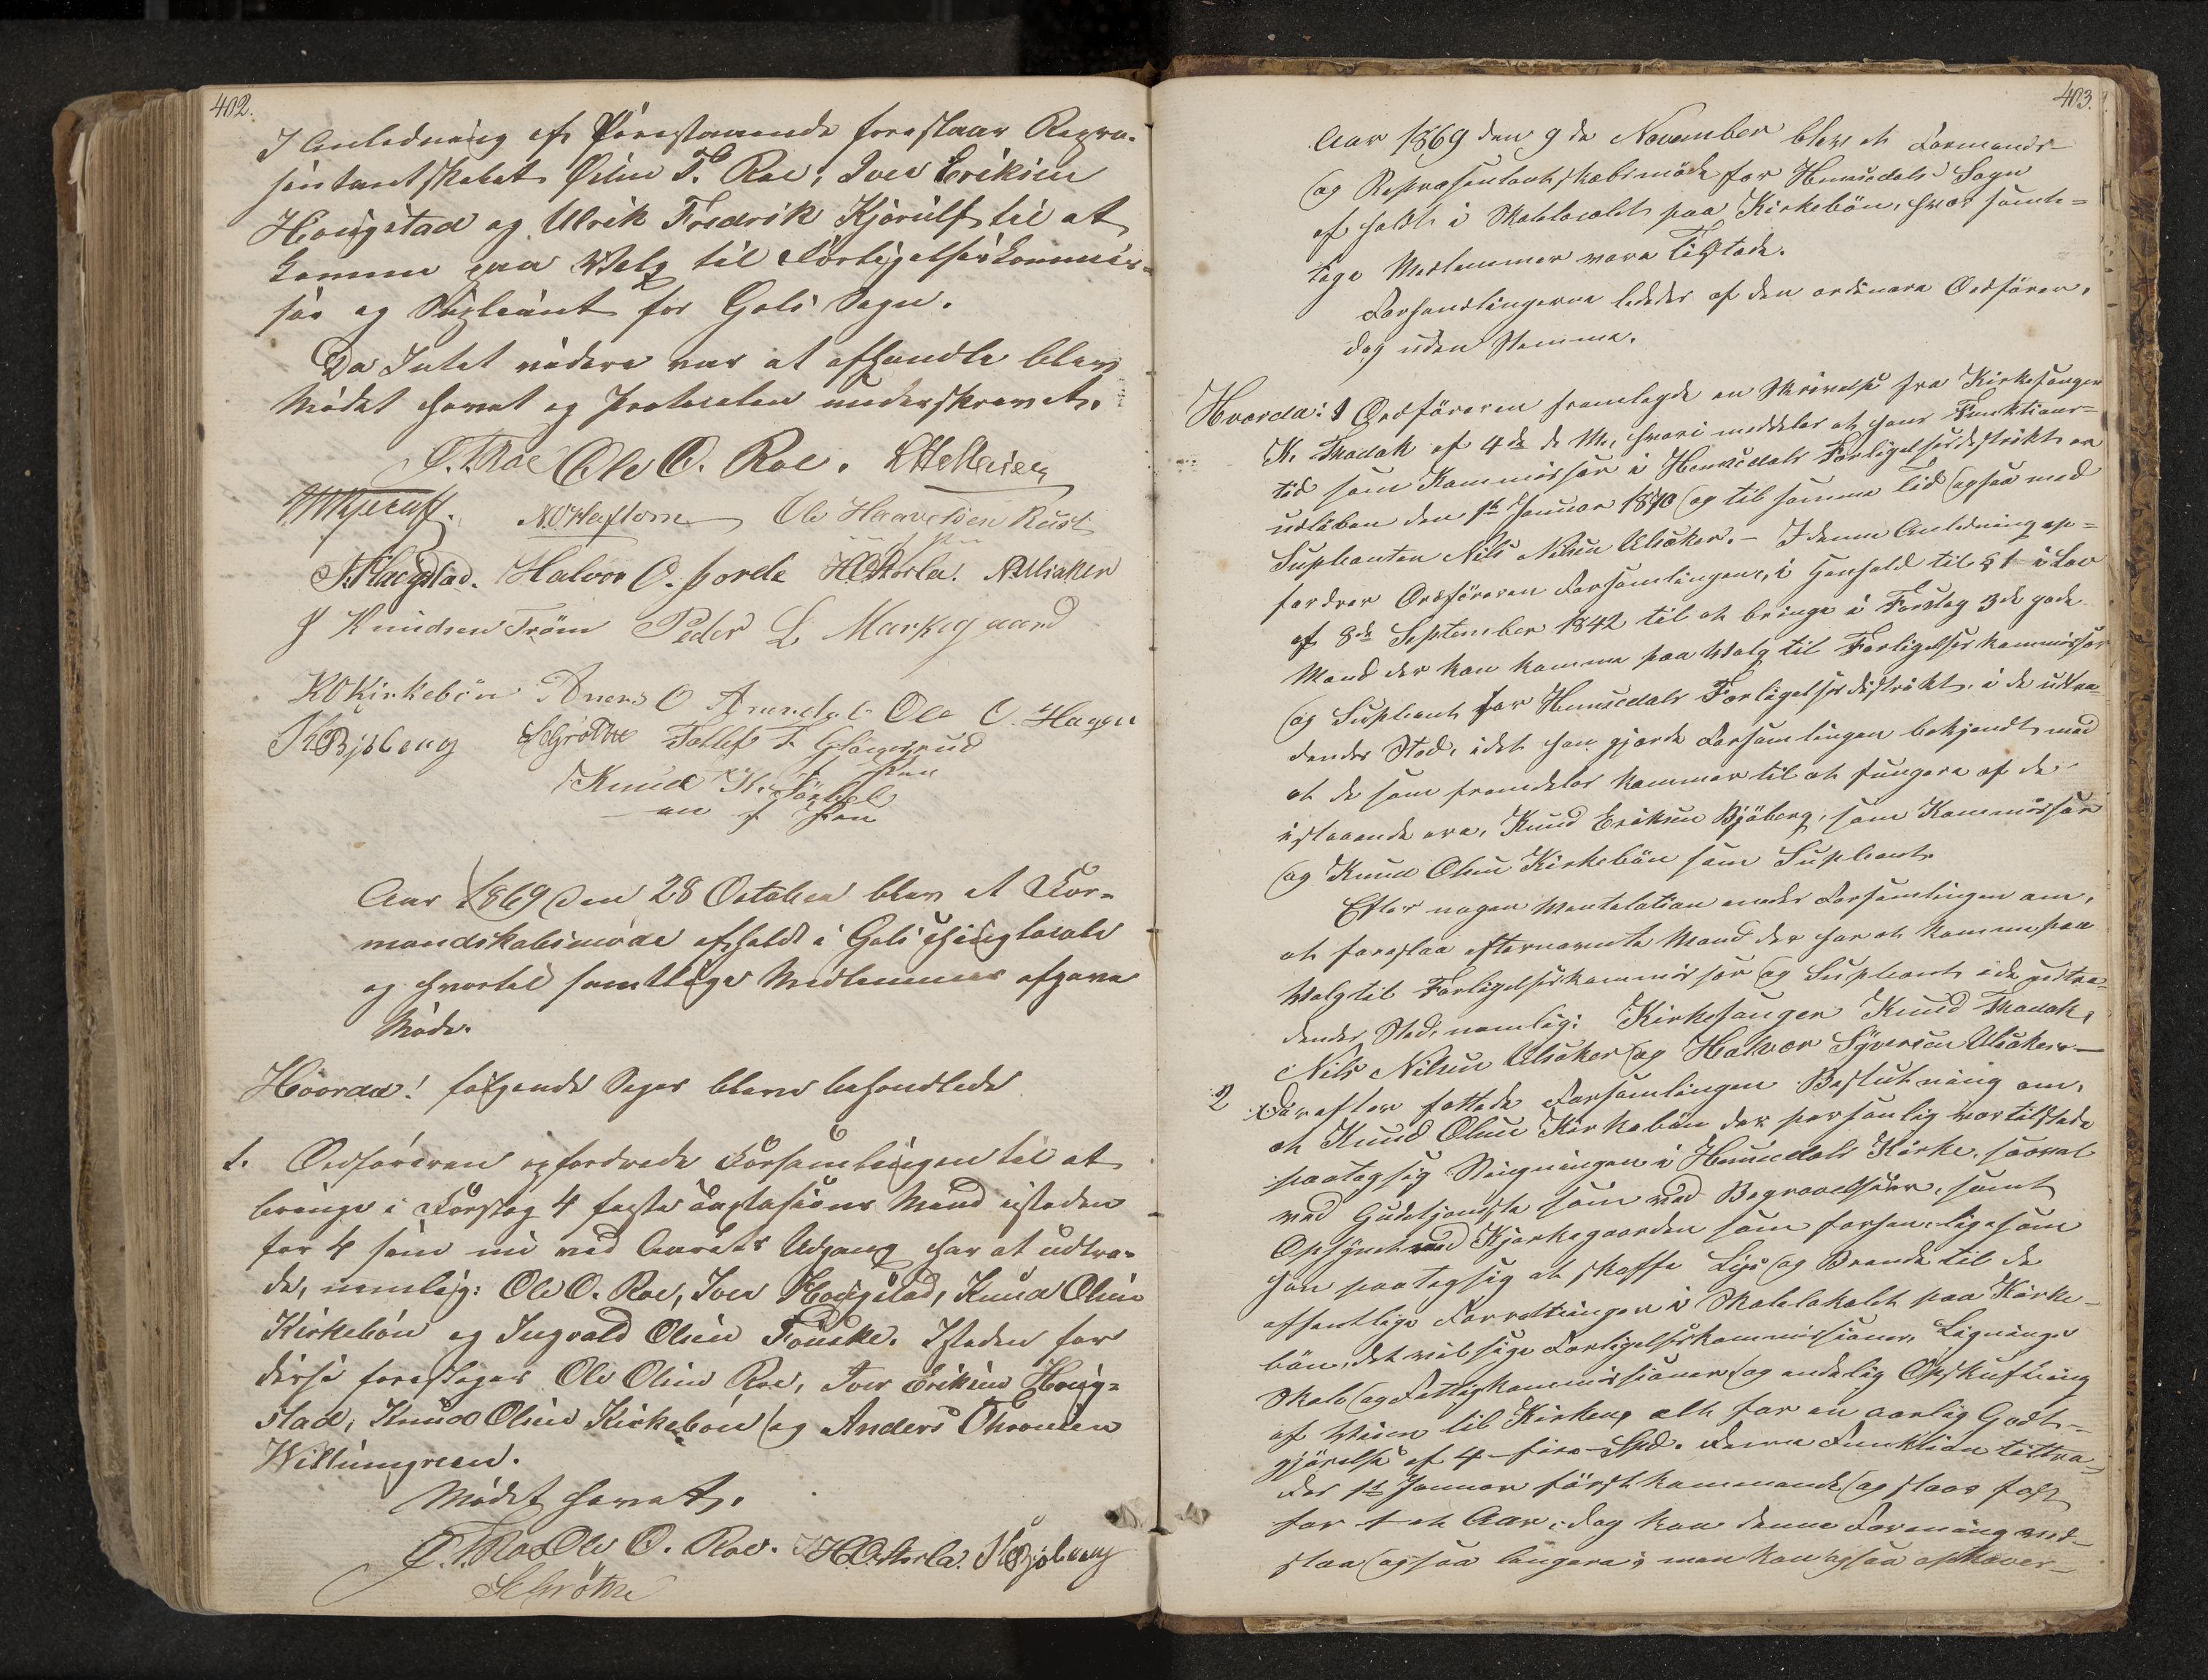 402.
I Anledning af Foranstaaende foreslaar Repræ-
sentantskabet Ørin T. Roe, Iver Eriksen
Hougstad og Ulrik Fredrik Kjørulf til at
komme paa Valg til Forligelseskommis-
sær og Supleant for Gols Sogn.
Da Intet videre var at afhandle blev
Mødet hævet og Protocolen underskrevet.
Ø. T. Roe Ole O. Roe.
N. O. Ole Haavelsen Rust
Halvor O. Storla. N. N. Ulsaker
Knudsen Trøm Peder L. Markegaard
K O Kirkebøn O Ole O.
K E Bjøberg S. Grøthe
Knud K.
m f Pen
Aar 1869 den 28 October blev et For-
mandskabsmøde afholdt i Gols Thinglocale
og hvortil samtlige Medlemmer afgave
Møde.
Hvorda! følgende Sager bleve behandlede
1. Ordføreren opfordrede Forsamlingen til at
bringe i Forslag 4 faste Mænd isteden
for 4 som nu ved Aarets Udgang har at udtræ-
de, nemlig: Ole O. Roe, Iver Hougstad, Knud Olsen
Kirkebøn og Ingvald Olsen Fauske. Isteden for
disse foreslages Ole Olsen Roe, Iver Eriksen Houg-
stad, Knud Olsen Kirkebøn og Anders
Mødet hævet.
Ø. T. Roe Ole O. Roe. H. O. Storla. K E Bjøberg
S Grøthe
403.
Aar 1869 den 9de November blev et Formands-
og Repræsentantskabsmøde for Hemsedals Sogn
afholdt i Skolelocalet paa Kirkebøn, hvor samt-
lige Medlemmer vare tilstede.
Forhandlingerne lededes af den ordinære Ordfører,
dog uden Stemme.
Hvorda: 1 Ordføreren fremlagde en Skrivelse fra Kirkesanger
K. Thadok af 4de d. M., hvori meddeles at hans Funktions-
tid som Kommissær i Hemsedals Forligelsesdistrikt er
udløben den 1ste Januar 1870 og til samme Tid ogsaa med
Supleanten Nils Nilsen Ulsaker. – I denne Anledning op-
fordrer Ordføreren Forsamlingen, i Henhold til § 1 i Lov
af 8de September 1842 til at bringe i Forslag 3de gode
Mænd der kan komme paa Valg til Forligelseskommissær
og Supleant for Hemsedals Forligelsesdistrikt, i de udtræ-
dendes Sted, idet han gjorde Forsamlingen bekjendt med
at de som fremdeles kommer til at fungere af de
istaaende ere, Knud Eriksen Bjøberg, som Kommissær
og Knud Olsen Kirkebøn som Supleant.
Efter nogen Ventelation enedes Forsamlingen om,
at foreslaa efternævnte Mænd der har at komme paa
Valg til Forligelseskommissær og Supleant i de udtræ-
dendes Sted, nemlig: Kirkesanger Knud Thadok,
Nils Nilsen Ulsaker og Halvor Syversen Ulsaker. –
2 Derefter fattede Forsamlingen Beslutning om,
at Knud Olsen Kirkebøn der personlig var tilstede
paatog sig Ringningen i Hemsedals Kirke, saavel
ved Gudstjeneste som ved Begravelser, samt
Opsynet med Kjerkegaarden som forhen, ligesom
han paatog sig at skaffe Lys og Brænde til de
offentlige Forretninger i Skolelokalet paa Kirke-
bøn, det vil sige Forligelseskommissioner, Lignings
Skole og Fattigkommissioner og endelig Opskuffning
af Veien til Kirken, alt for en aarlig Godt-
gjørelse af 4 – fire – Spd. Denne Funktion tiltræ-
des 1ste Januar førstkommende og staar fast
for 1 et Aar, dog kan denne Forening ved-
staa ogsaa længere; man kan ogsaa